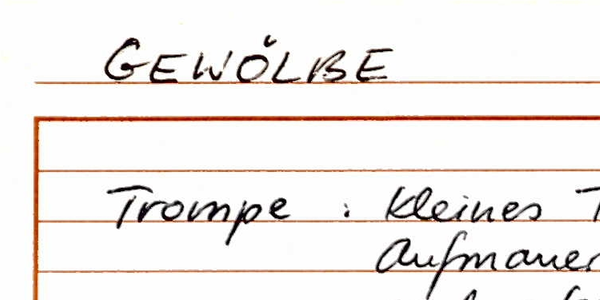 GEWÖLBE
Trompe : kleines T
Aufmauer